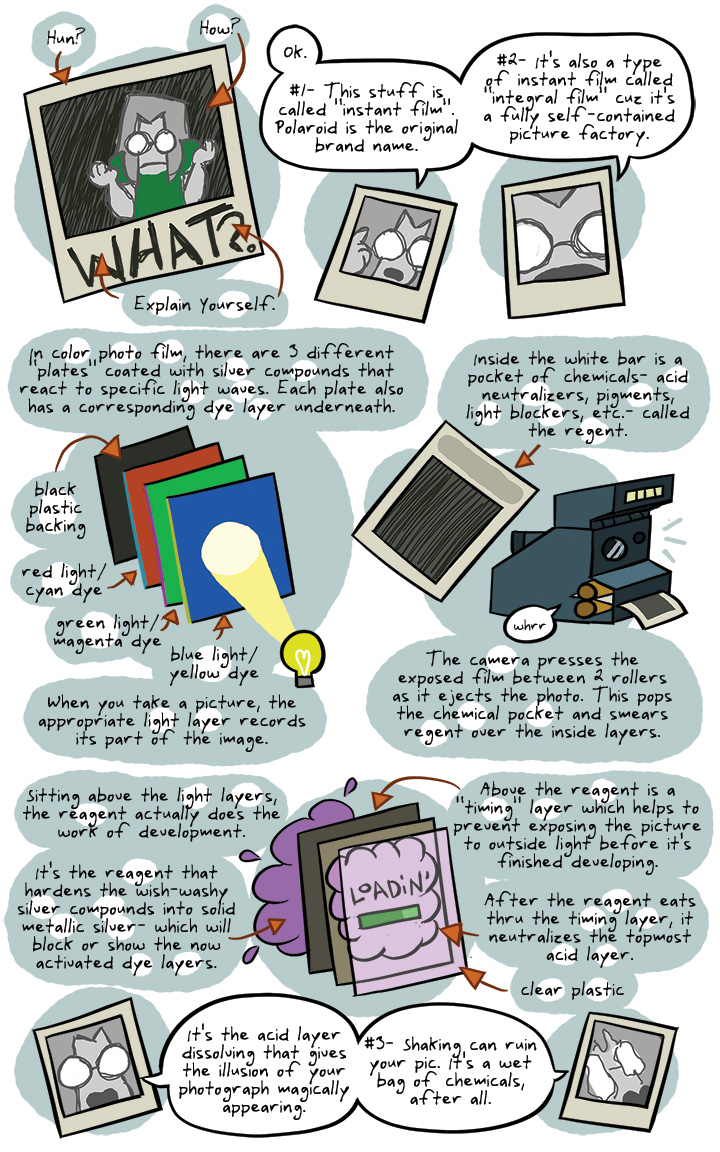 Hun?
How?
WHAT?!
Explain Yourself.
Ok.
#1- This stuff is
called "instant film".
Polaroid is the original
brand name.
#2- It's also a type
of instant film called
"integral film" cuz it's
a fully self-contained
picture factory.
In color photo film, there are 3 different
"plates" coated with silver compounds that
react to specific light waves. Each plate also
has a corresponding dye layer underneath.
black
plastic
backing
red light/
cyan dye
green light/
magenta dye
blue light/
yellow dye
When you take a picture, the
appropriate light layer records
its part of the image.
Inside the white bar is a
pocket of chemicals- acid
neutralizers, pigments,
light blockers, etc.- called
the regent.
whrr
The camera presses the
exposed film between 2 rollers
as it ejects the photo. This pops
the chemical pocket and smears
regent over the inside layers.
Sitting above the light layers,
the reagent actually does the
work of development.
It's the reagent that
hardens the wish-washy
silver compounds into solid
metallic silver- which will
block or show the now
activated dye layers.
LOADIN'
Above the reagent is a
"timing" layer which helps to
prevent exposing the picture
to outside light before it's
finished developing.
After the reagent eats
thru the timing layer, it
neutralizes the topmost
acid layer.
clear plastic
It's the acid layer
dissolving that gives
the illusion of your
photograph magically
appearing.
#3- Shaking can ruin
your pic. It's a wet
bag of chemicals,
after all.